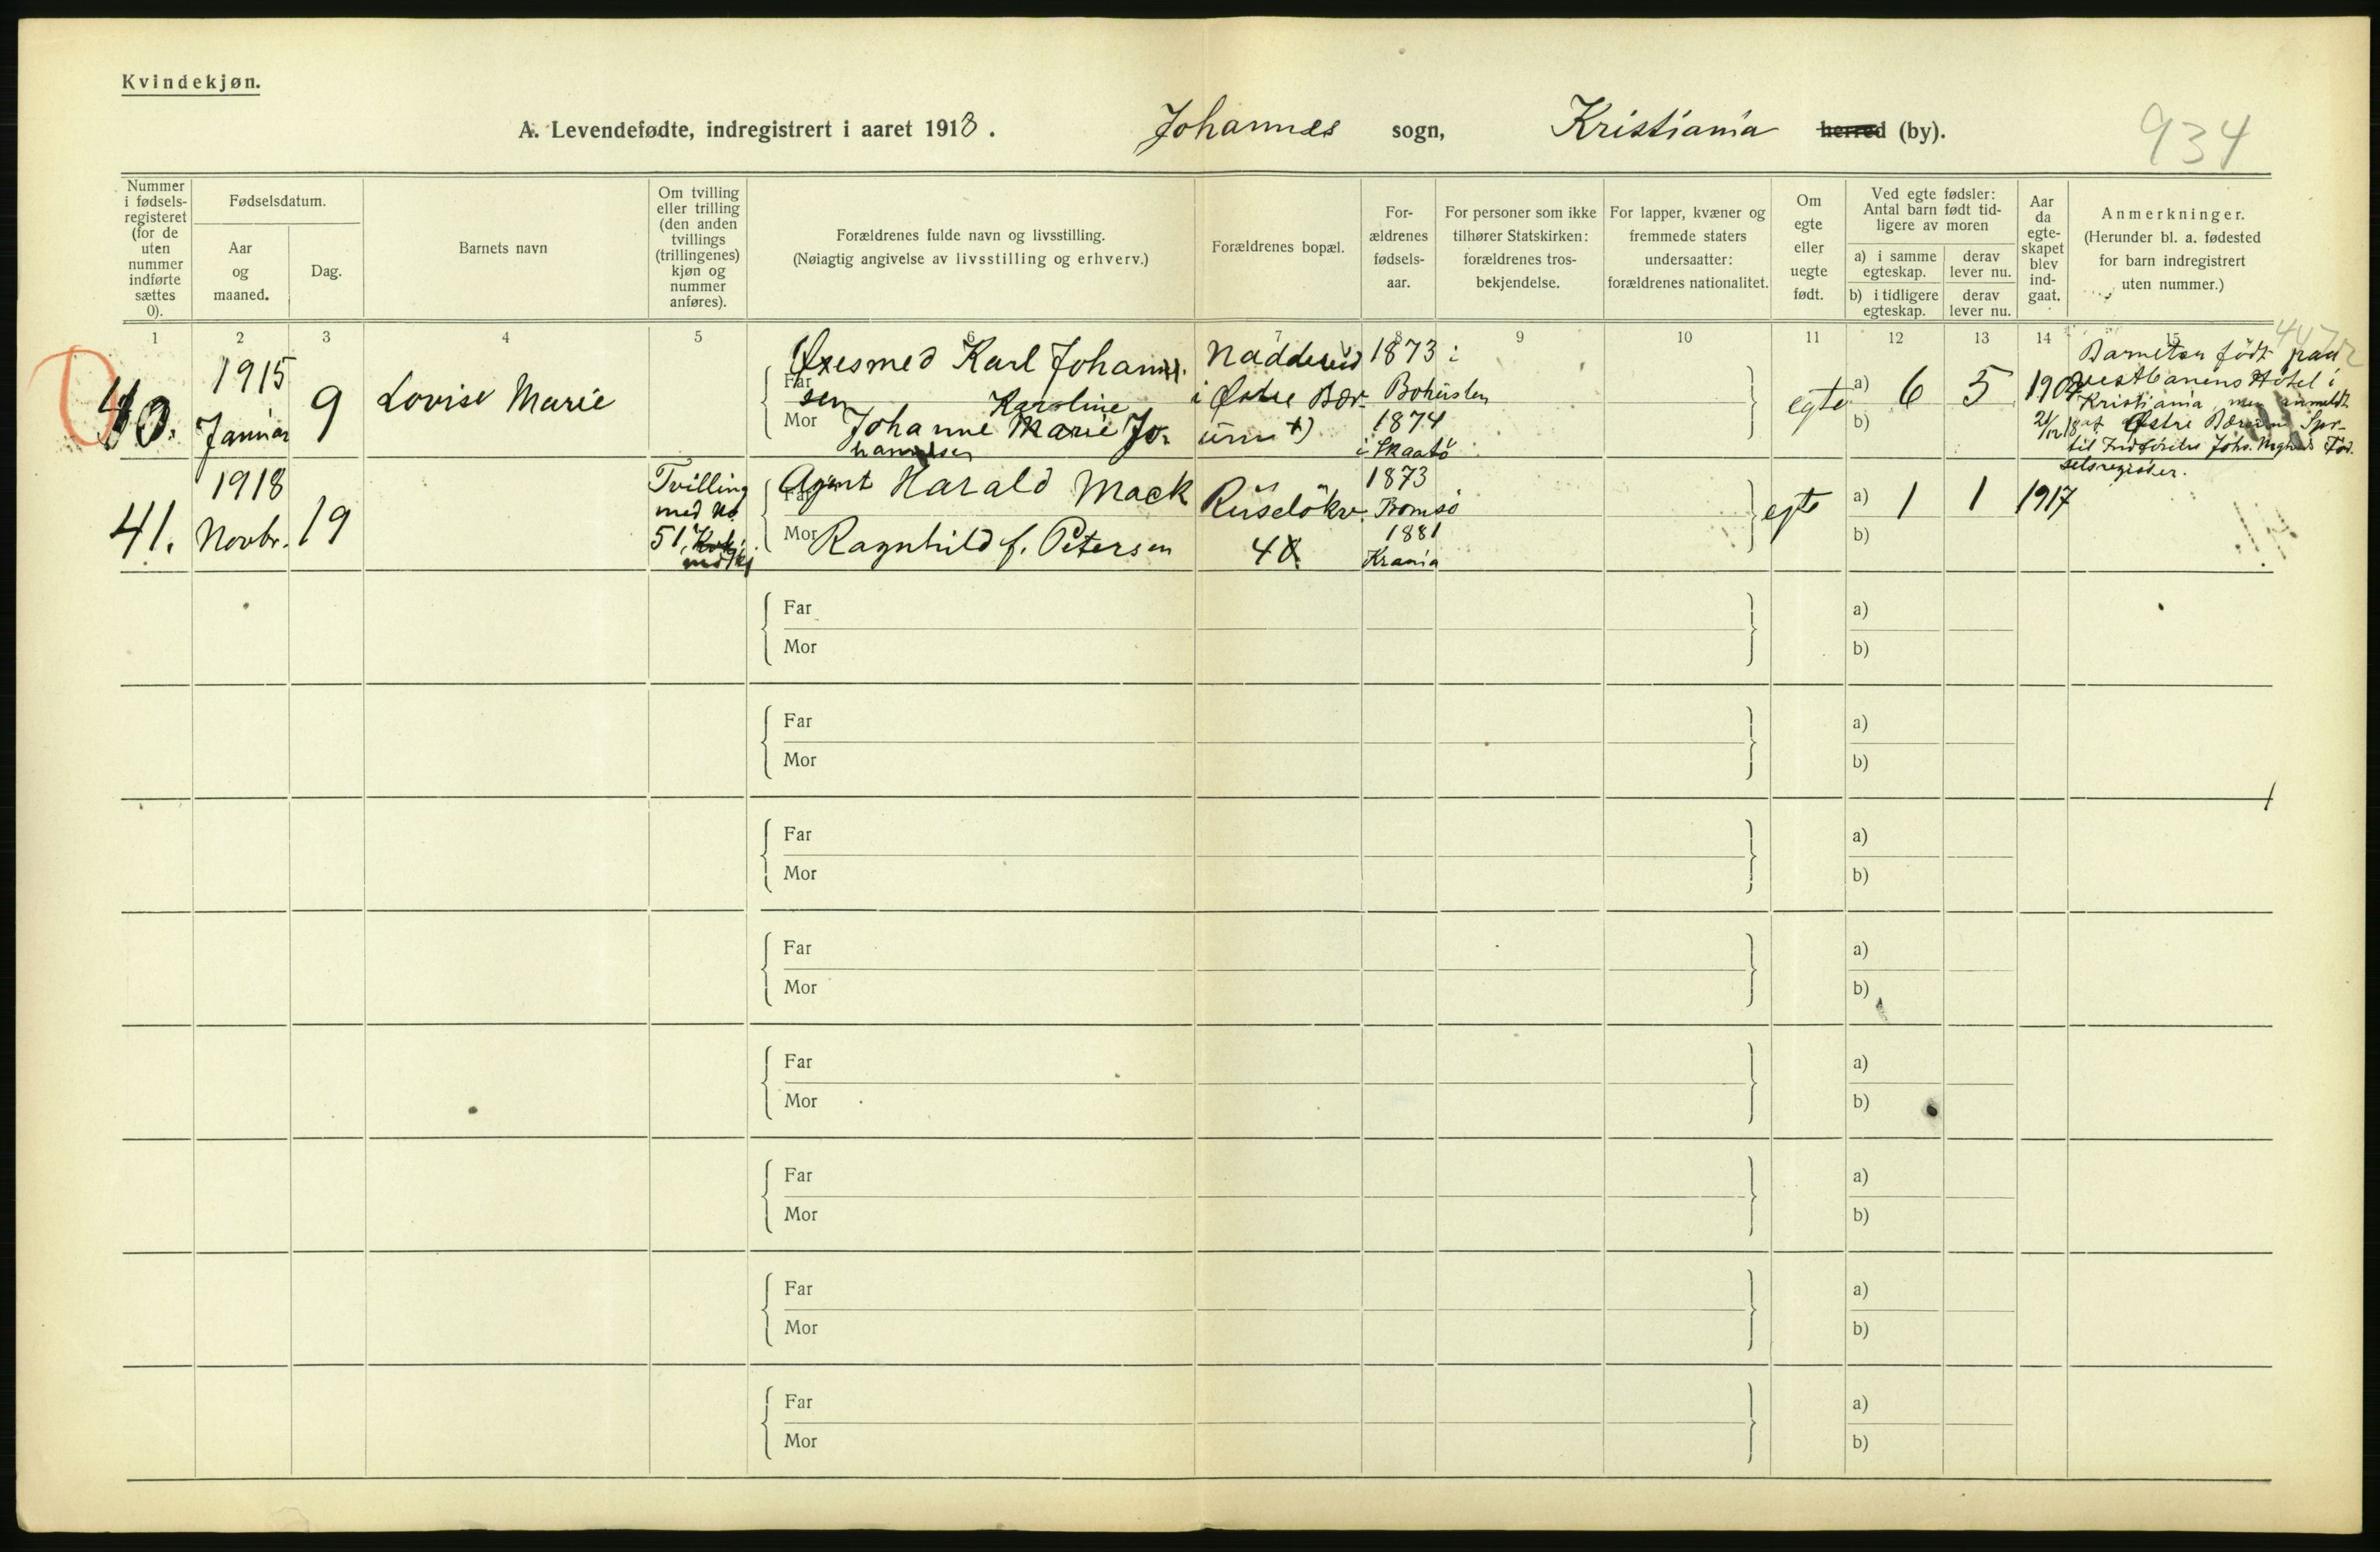 Kvindekjøn.
A. Levendefødte, indregistrert i aaret 1918. Johannes sogn, Kristiania herred (by). 934
Nummer i fødsels-registeret (for de uten nummer indførte sættes 0).
Fødselsdatum.
Aar og maaned.
Dag.
Barnets navn
Om tvilling eller trilling (den anden tvillings (trillingenes) kjøn og nummer anføres).
Forældrenes fulde navn og livsstilling.
(Nøiagtig angivelse av livsstilling og erhverv.)
Forældrenes bopæl.
For-ældrenes fødsels-aar.
For personer som ikke tilhører Statskirken: forældrenes tros-bekjendelse.
For lapper, kvæner og fremmede staters undersaatter: forældrenes nationalitet.
Om egte eller uegte født.
Ved egte fødsler: Antal barn født tid-ligere av moren
a) i samme egteskap.
derav lever nu.
b) i tidligere egteskap.
derav lever nu.
Aar da egte-skapet blev ind-gaat.
Anmerkninger.
(Herunder bl. a. fødested for barn indregistrert uten nummer.)
1 2 3 4 5 6 7 8 9 10 11 12 13 14 15
40. 1915 Januar 9 Lovise Marie
Far Øxesmed Karl Johannes-
sen
Mor Johanne Karoline Marie Jo-
hannesen
Nadderud
i Østre Bær-
um +)
1873 i
Bohuslen
1874
i Skaatö
egte a) 6 5
b)
Barnet er født paa
Vestbanens Hotel i
Kristiania, men anmeldt
Østre Bærum
til Indførelse Johs. Mgh. Fød-
selsregister.
41. 1918 Novbr. 19
Tvilling
med No
51,
Far Agent Harald Mack
Mor Ragnhild f. Petersen
Ruselökv.
1873
Tromsö
1881
Krania
egte a) 1 1 1917
b)
Far a)
Mor b)
Far a)
Mor b)
Far a)
Mor b)
Far a)
Mor b)
Far a)
Mor b)
Far a)
Mor b)
Far a)
Mor b)
Far a)
Mor b)